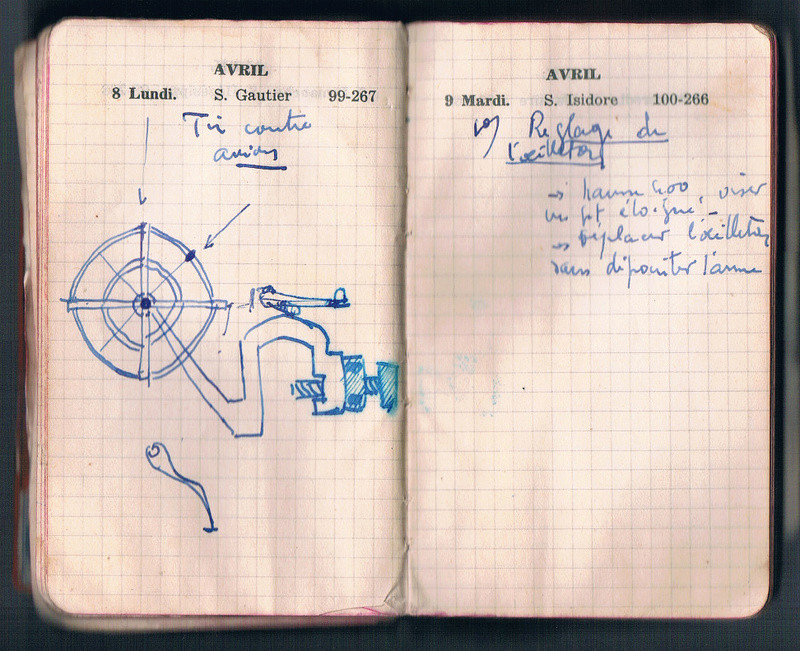 AVRIL
8 Lundi. S. Gautier 99-267
Tir contre
avions
AVRIL
9 Mardi. S. Isidore 100-266
1°/ Reglage de
l'œilleton
→ hausse 400, viser
un pt éloigné.
→ déplacer l'œilleton
sans dépointer l'arme